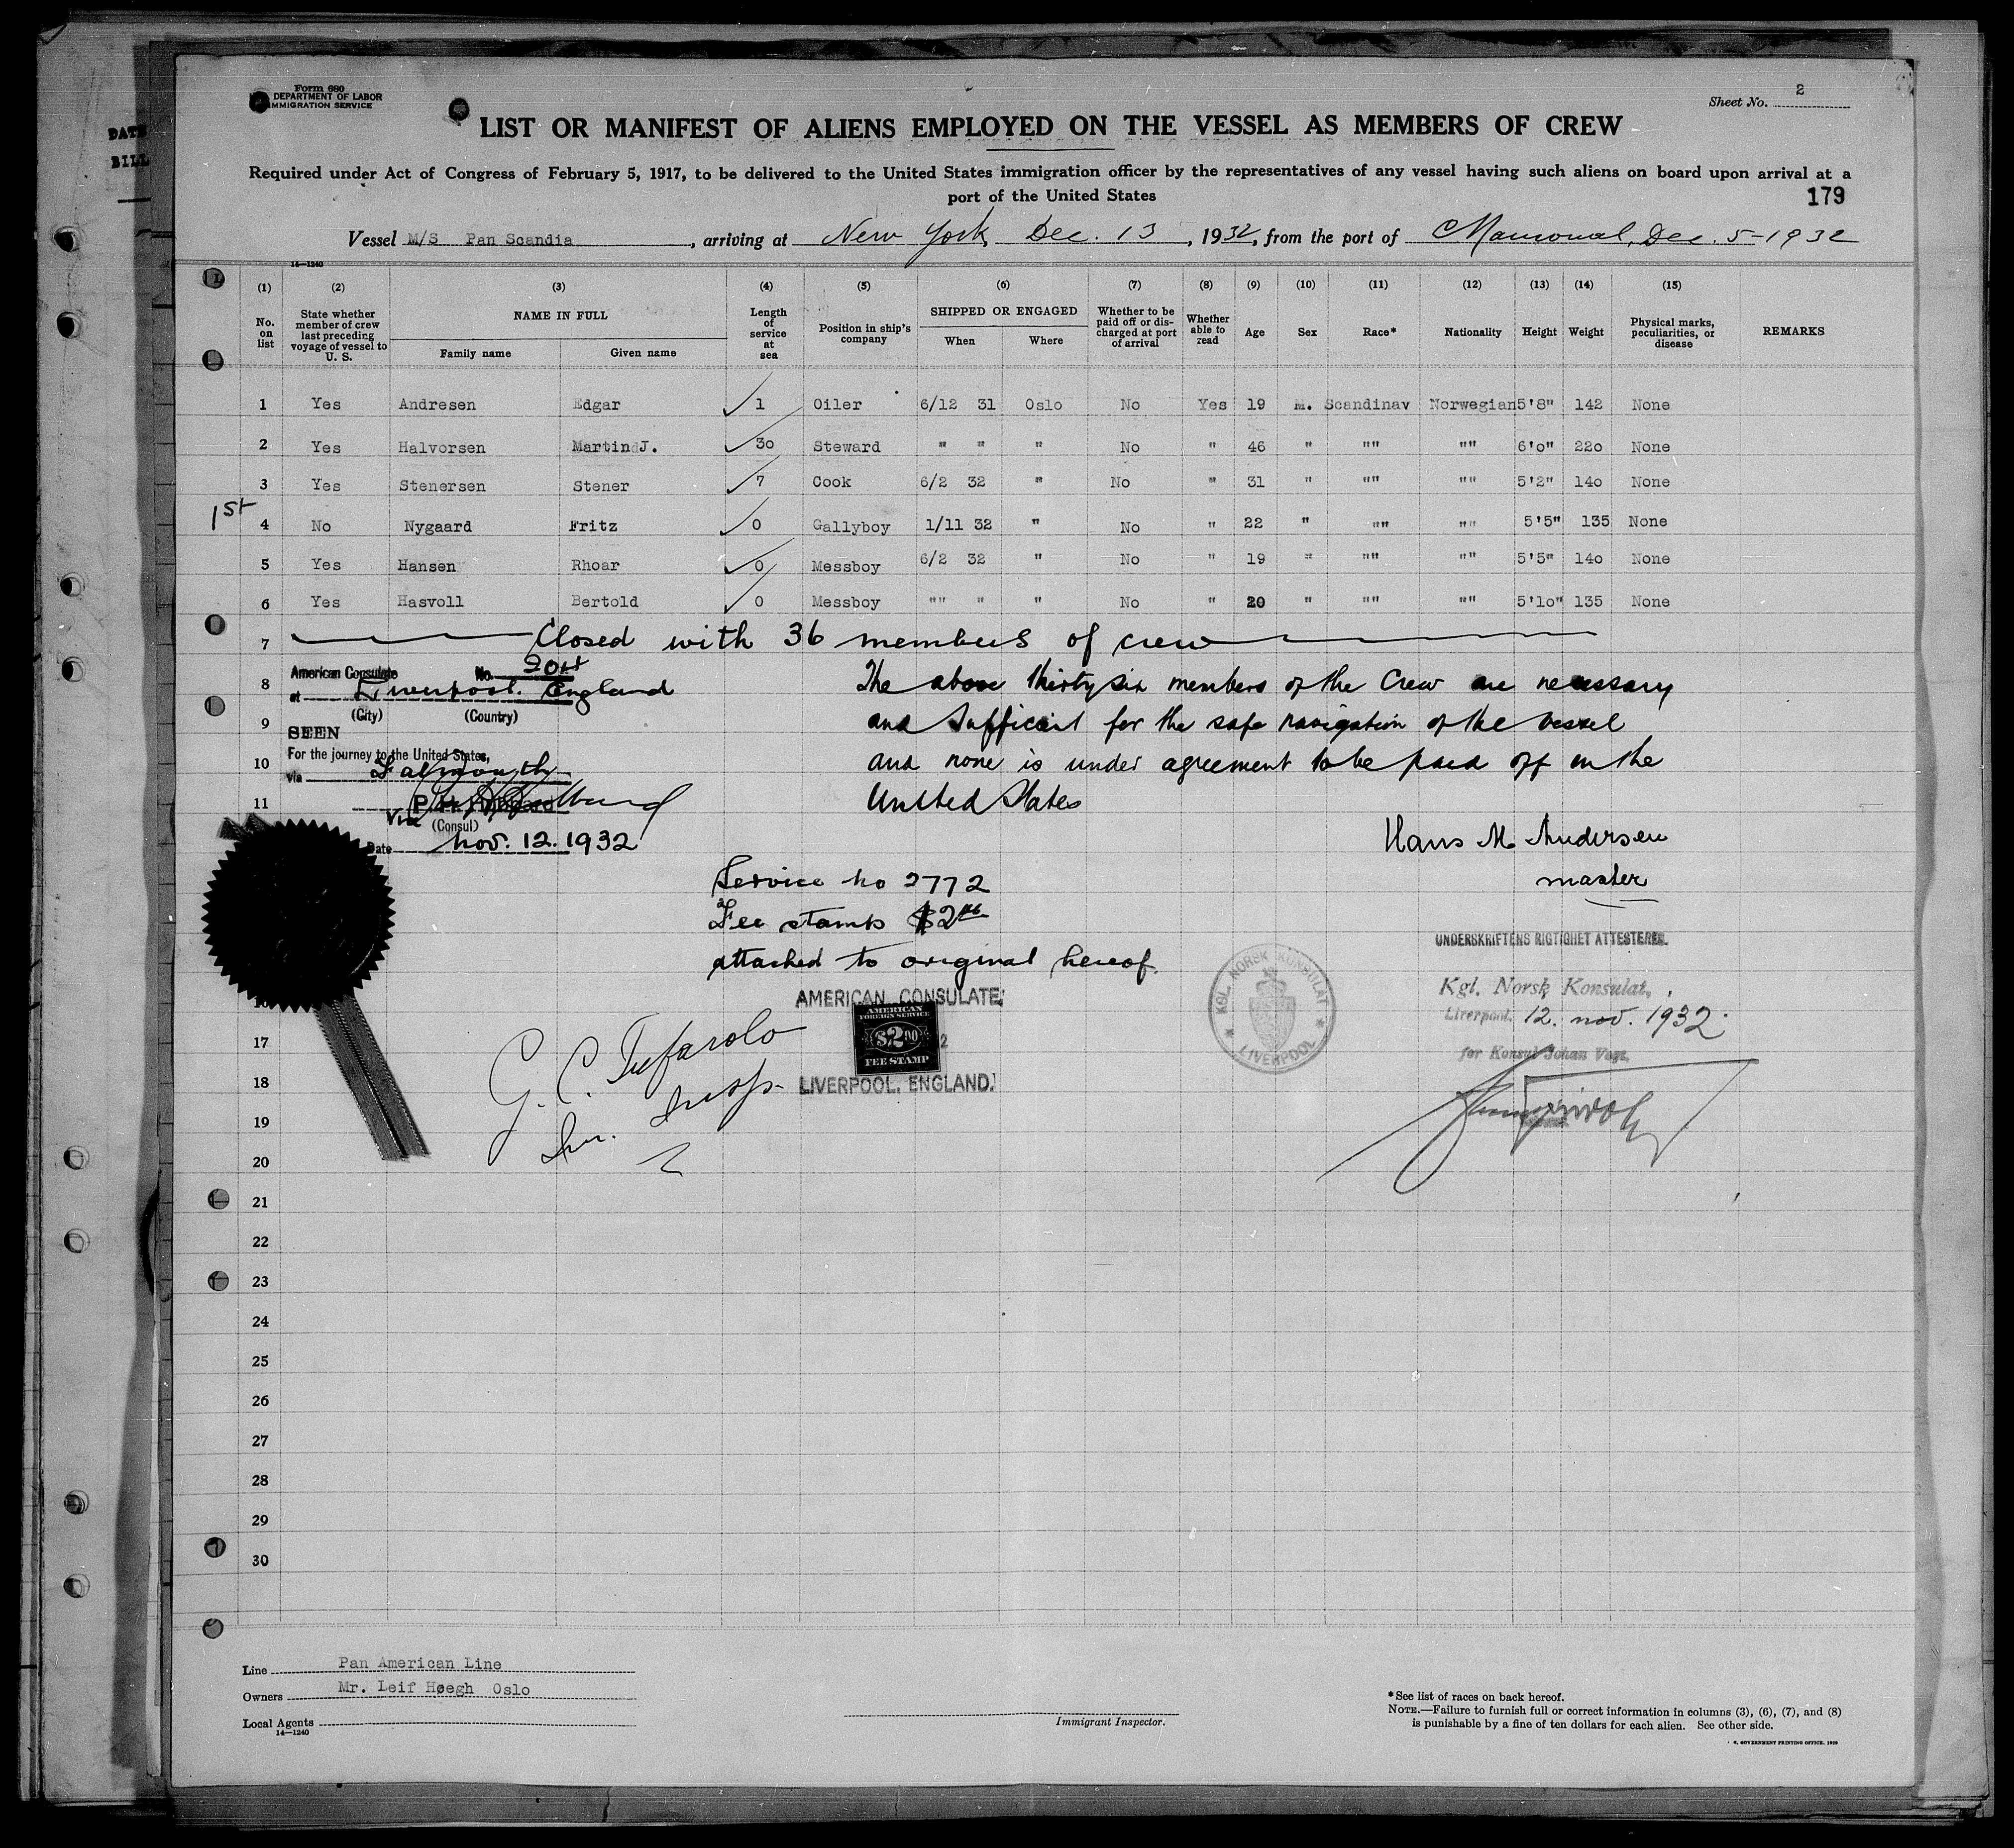 DATE
BILL
Form 680
DEPARTMENT OF LABOR
IMMIGRATION SERVICE
Sheet No. 2
LIST OR MANIFEST OF ALIENS EMPLOYED ON THE VESSEL AS MEMBERS OF CREW
Required under Act of Congress of February 5, 1917, to be delivered to the United States immigration officer by the representatives of any vessel having such aliens on board upon arrival at a
port of the United States
179
Vessel M/S Pan Scandia, arriving at New York, Dec. 13, 1932, from the port of Mamonal, Dec. 5-1932
14—1240
(1) (2) (3) (4) (5) (6) (7) (8) (9) (10) (11) (12) (13) (14) (15)
No. on list State whether member of crew last preceding voyage of vessel to U. S. NAME IN FULL Family name Given name Length of service at sea Position in ship's company SHIPPED OR ENGAGED When Where Whether to be paid off or discharged at port of arrival Whether able to read Age Sex Race* Nationality Height Weight Physical marks, peculiarities, or disease REMARKS
1 Yes Andresen Edgar 1 Oiler 6/12 31 Oslo No Yes 19 M. Scandinav Norwegian 5'8" 142 None
2 Yes Halvorsen Martin J. 30 Steward " " " No " 46 " "" "" 6'0" 220 None
3 Yes Stenersen Stener 7 Cook 6/2 32 " No " 31 " "" "" 5'2" 140 None
1st 4 No Nygaard Fritz 0 Gallyboy 1/11 32 " No " 22 " "" "" 5'5" 135 None
5 Yes Hansen Rhoar 0 Messboy 6/2 32 " No " 19 " "" "" 5'5" 140 None
6 Yes Hasvoll Bertold 0 Messboy "" " " No " 20 " "" "" 5'10" 135 None
7 Closed with 36 members of crew
American Consulate No.
8 at Liverpool. England
(City) (Country)
The above thirty six members of the Crew are necessary
9 and sufficient for the safe navigation of the vessel
SEEN
For the journey to the United States,
10 via Falmouth
and none is under agreement to be paid off in the
11 United States
Vice (Consul)
Date Nov. 12. 1932
Hans M. Andersen
master
Service no 2772
Fee stamp $2.00
attached to original hereof.
AMERICAN CONSULATE
AMERICAN
FOREIGN SERVICE
$2.00
FEE STAMP
LIVERPOOL, ENGLAND.
G. C. Tufarolo
Im. Insp.
KGL. NORSK KONSULAT
LIVERPOOL
UNDERSKRIFTENS RIGTIGHET ATTESTERES.
Kgl. Norsk Konsulat,
Liverpool. 12. nov. 1932.
for Konsul Johan Vogt,
17
18
19
20
21
22
23
24
25
26
27
28
29
30
Line Pan American Line
Owners Mr. Leif Høegh Oslo
Local Agents
14—1240
Immigrant Inspector.
*See list of races on back hereof.
NOTE.—Failure to furnish full or correct information in columns (3), (6), (7), and (8)
is punishable by a fine of ten dollars for each alien. See other side.
GOVERNMENT PRINTING OFFICE. 1929